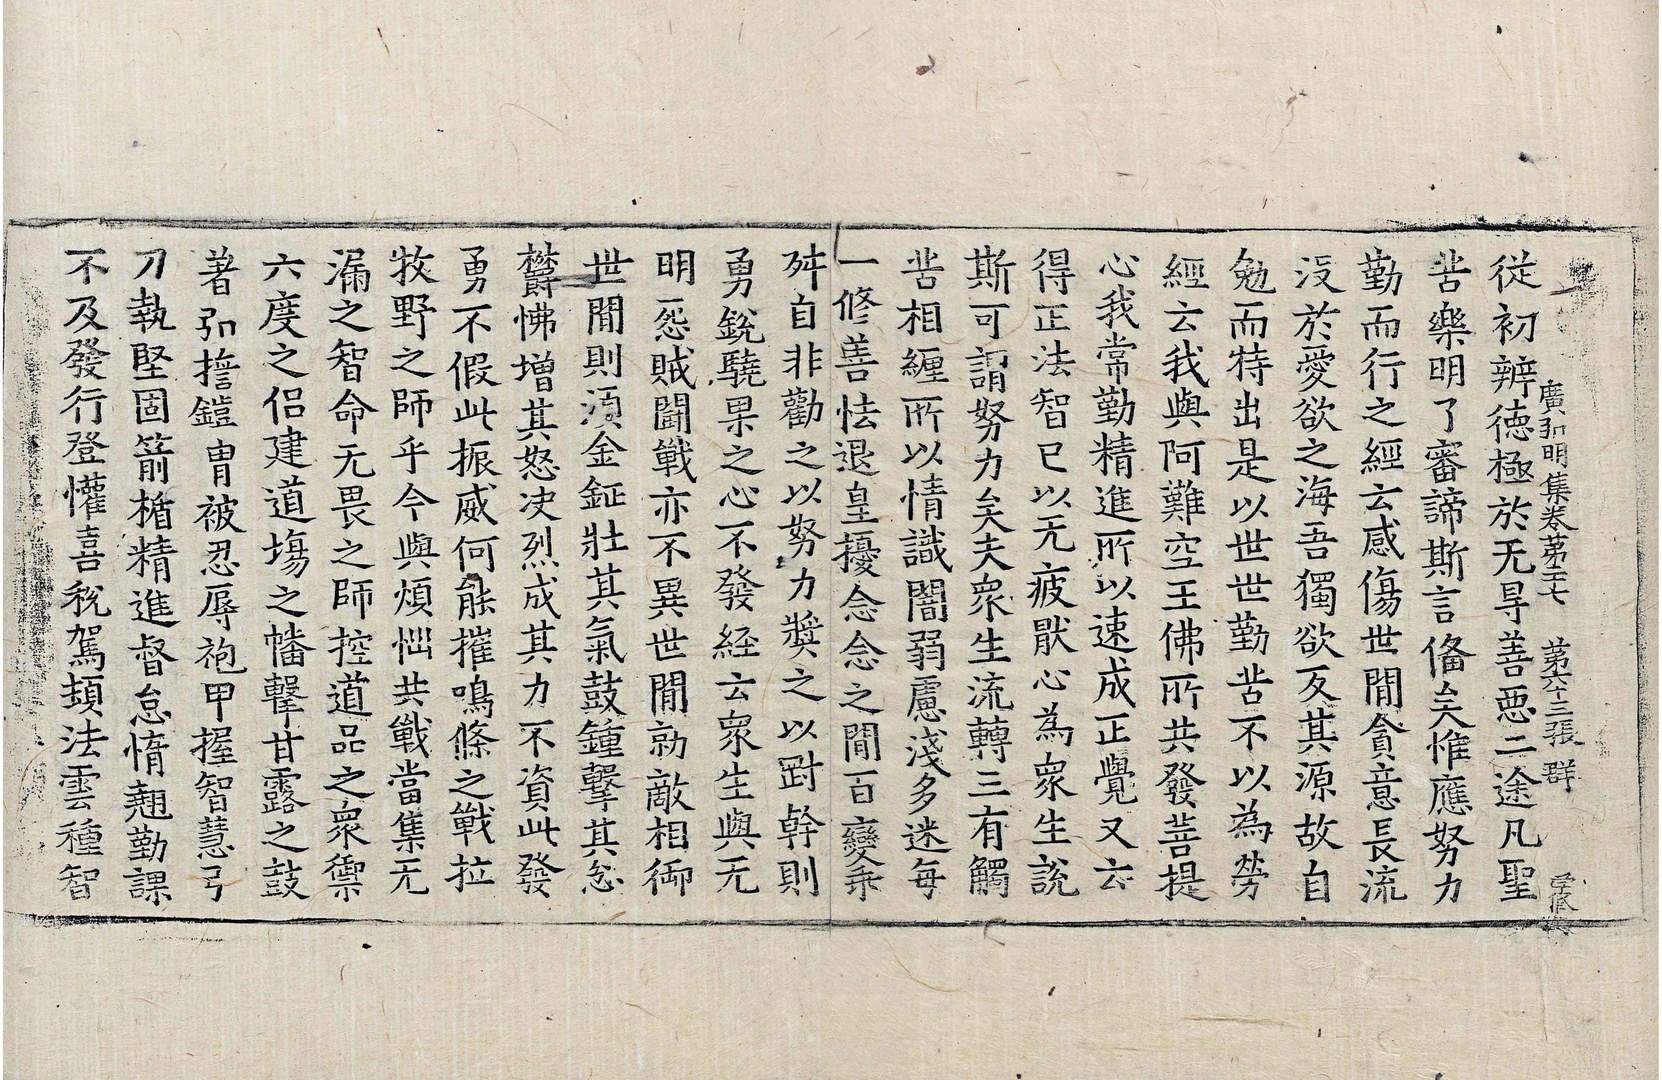 從初辨德極於无㝵善惡二途凡聖
廣弘明集卷第二十七 第六十三張 群
苦樂明了審諦斯言俻矣惟應努力
勤而行之經云感傷世間貪意長流
没於愛欲之海吾獨欲反其源故自
勉而特出是以世世勤苦不以為勞
經云我與阿難空王佛所共發菩提
心我常勤精進所以速成正覺又云
得正法智已以无疲猒心為衆生說
斯可謂努力矣夫衆生流轉三有觸
苦相纏所以情識闇弱慮淺多迷每
一修善怯退皇擾念念之間百變乖
舛自非勸之以努力奬之以㓰幹則
勇銳驍果之心不發經云衆生與无
明怨賊鬪戰亦不異世間勍敵相御
世間則須金鉦壯其氣鼓鍾擊其忿
欝怫增其怒决烈成其力不資此發
勇不假此振威何能摧鳴條之戰拉
牧野之師乎今與煩惱共戰當集无
漏之智命无畏之師控道品之衆禦
六度之侣建道場之幡擊甘露之鼓
著弘誓鎧冑被忍辱袍甲握智慧弓
刀執堅固箭楯精進督怠惰翹勤課
不及發行登懽喜稅駕頞法雲種智